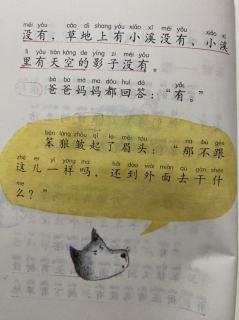 méi yǒu cǎo dì shang yǒu xiǎo xī méi yǒu xiǎo xī
没有，草地上有小溪没有，小溪
lǐ yǒu tiān kōng de yǐng zi méi yǒu
里有天空的影子没有。
bà ba mā ma dōu huí dá yǒu
爸爸妈妈都回答：“有。”
bèn láng zhòu qǐ le méi tóu nà bù gēn
笨狼皱起了眉头：“那不跟
zhè er yí yàng ma hái dào wài miàn qù gàn shén
这儿一样吗，还到外面去干什
me
么？”